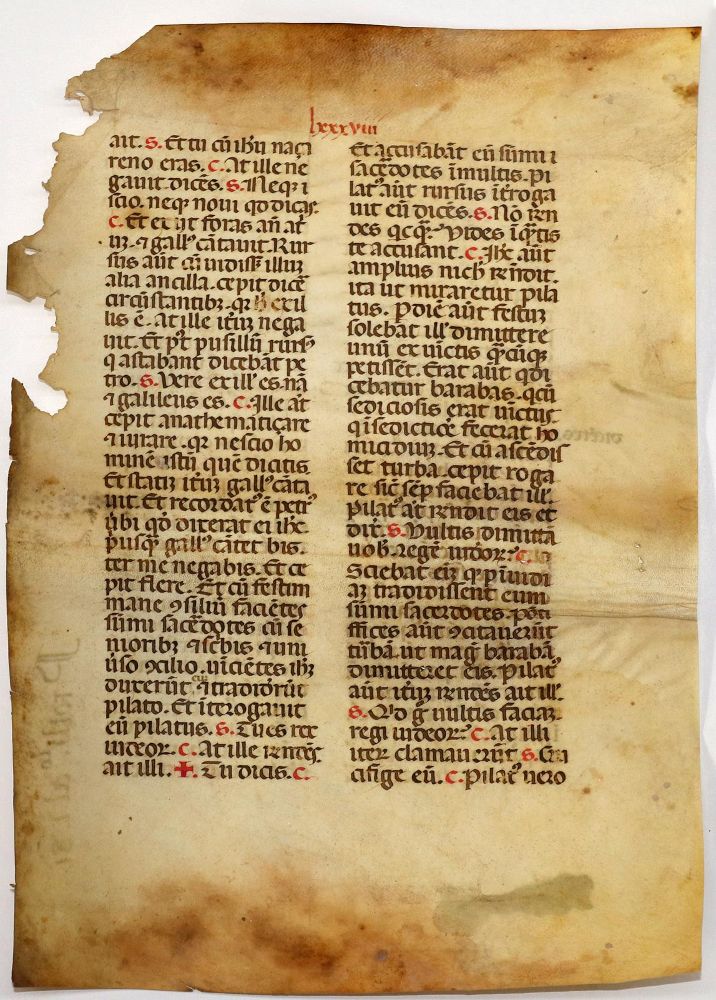 lxxxviii
ait. S. Et tu cū ihu naça
reno eras. C. At ille ne
gauit dicēs. S. Neq̄ i
scio neq̄ noui qd dicas.
C. Et exiit foras an̄ at
iū. ⁊ gallꝰ cātauit. Rur
sus aūt cū uidisꝫ illū
alia ancilla. cepit dicē
circūstantibꝫ. qr ex il
lis ē. At ille itūꝫ nega
uit. Et pꝰt pusillū rursꝰ
q astabant dicebāt pe
tro. S. Vere ex ill̓ es. nā
⁊ galileus es. C. Ille āt
cepit anathematiçare
⁊ iurare. qr nescio ho
minē istū quē dicitis.
Et statiꝫ itūꝫ gallꝰ cāta
uit. Et recordatꝰ ē petrꝰ
ūbi qd dixerat ei ihc.
p̄usq̄ʒ gallꝰ cātet bis.
ter me negabis. Et ce
pit flere. Et cū festim
mane ꝯsiliū faciētes
sūmi sacēdotes cū se
nioribꝫ ⁊ scbis ⁊ uni
ūso ꝯcilio. uīciētes ihꝫ
duxerūt ⁊ tradiderūt
pilato. Et īterogauit
eū pilatus. S. Tu es rex
iudeoꝝ. C. At ille rn̄dēs
ait illi. ✚. Tu dicis. C.
Et accusabāt eū sūmi
sacēdotes īmultis. Pi
latꝰ aūt rursus īt̄roga
uit eū dicēs. S. Nō rn̄
des qcq̄ʒ. Vides īq̄tis
te accusant. C. Ihc aūt
amplius nich̓ rn̄dit.
ita ut miraretur pila
tus. P diē aūt festuꝫ
solebat ill̓ dimittere
unū ex uīctis q̄cūq̄
petissēt. Erat aūt qdi
cebatur barabas. qcū
sediciosis erat uīctus.
q īsedictiōe fecerat ho
micidiuꝫ. Et cū ascēdis
set turba. cepit roga
re sic̄ sēp faciebat ill̓.
Pilatꝰ āt rn̄dit eis et
dix̄. S. Vultis dimittā
uob̓ regē iudeoꝝ. C.
Sciebat eī q p īuidi
aꝫ tradidissent eum
sūmi sacerdotes. Pōti
fices aūt ꝯcitauerūt
tūbā. ut mag̓ barabā
dimitteret eis. Pilatꝰ
aūt itūꝫ rn̄dēs ait ill̓.
S. Qd g̊ uultis faciaꝫ
regi iudeoꝝ. C. At illi
iter̄ clamauerūt S. Cru
cifige eū. C. Pilatꝰ uero